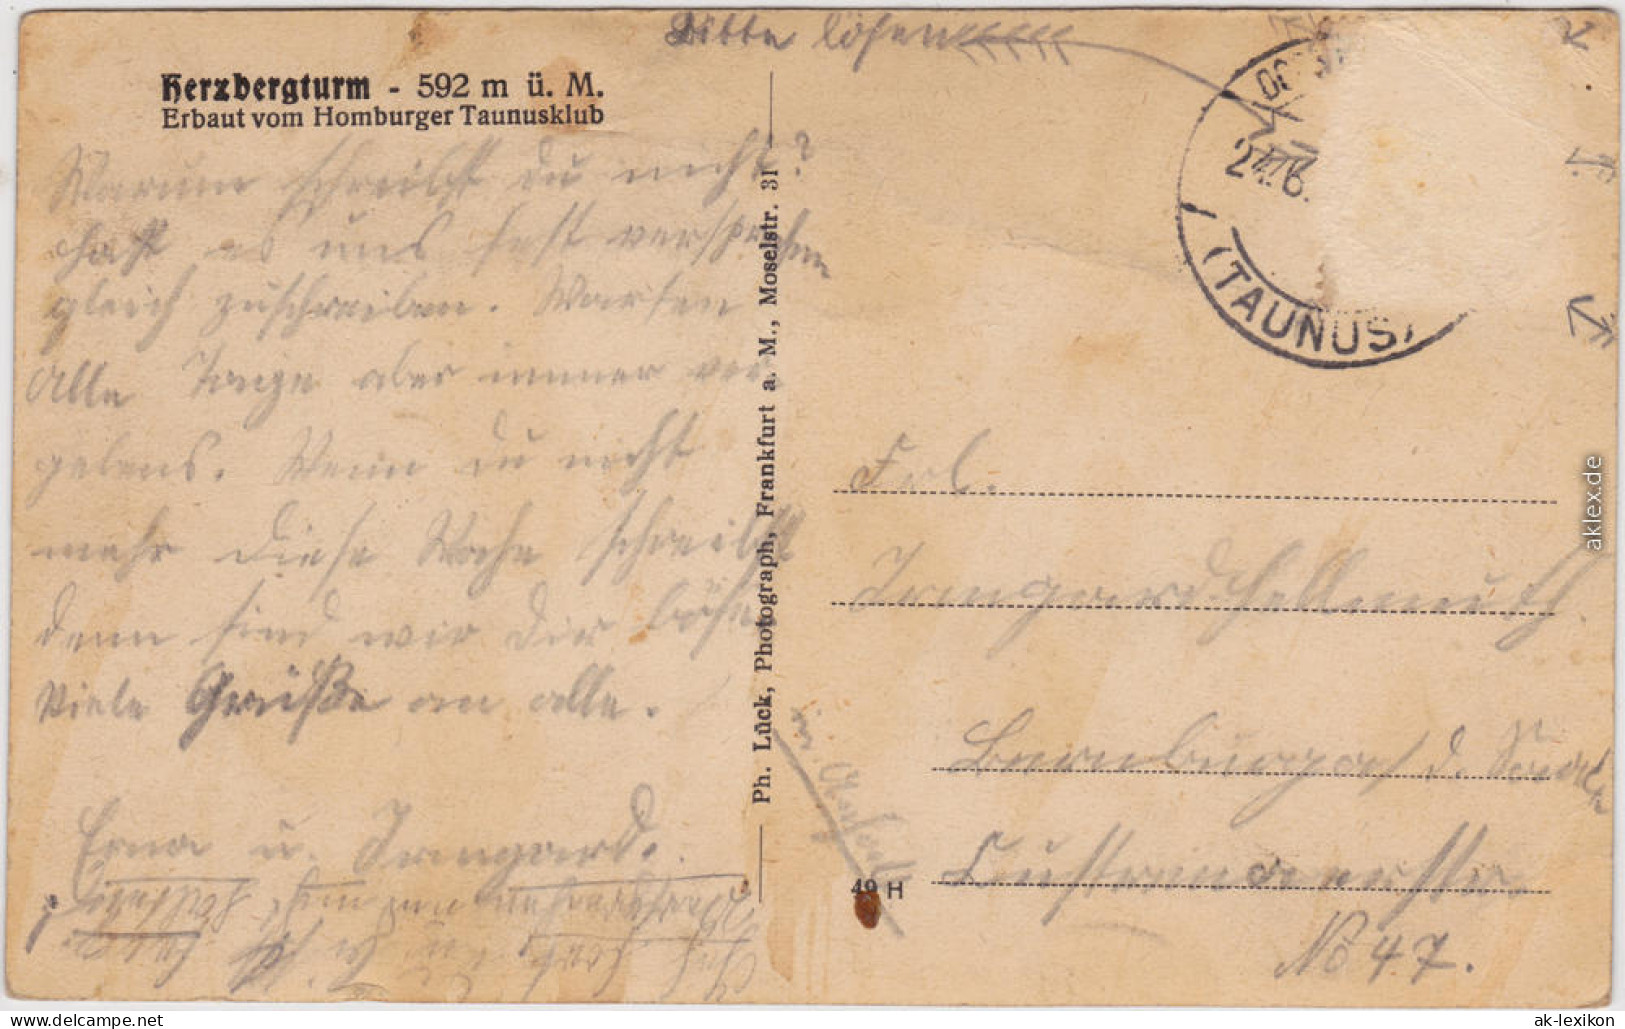 Bitte lösen
Herzbergturm - 592 m ü. M.
Erbaut vom Homburger Taunusklub
Warum schreibst du nicht?
hast es uns fest versprochen
gleich zuschreiben. Warten
Alle Tage aber immer ver
gebens. Wenn du nicht
mehr diese Woche schreibst
dann sind wir dir böse.
Viele Grüße an alle.
Erna u. Irmgard.
Ph. Lück, Photograph, Frankfurt a. M., Moselstr. 31
49 H
24.6.
(TAUNUS)
Frl.
Irmgard Hellmuth.
Bernburg a/d. Saale
Custrinaerstr.
No 47.
aklex.de
© The owner - Delcampe.net
ak-lexikon